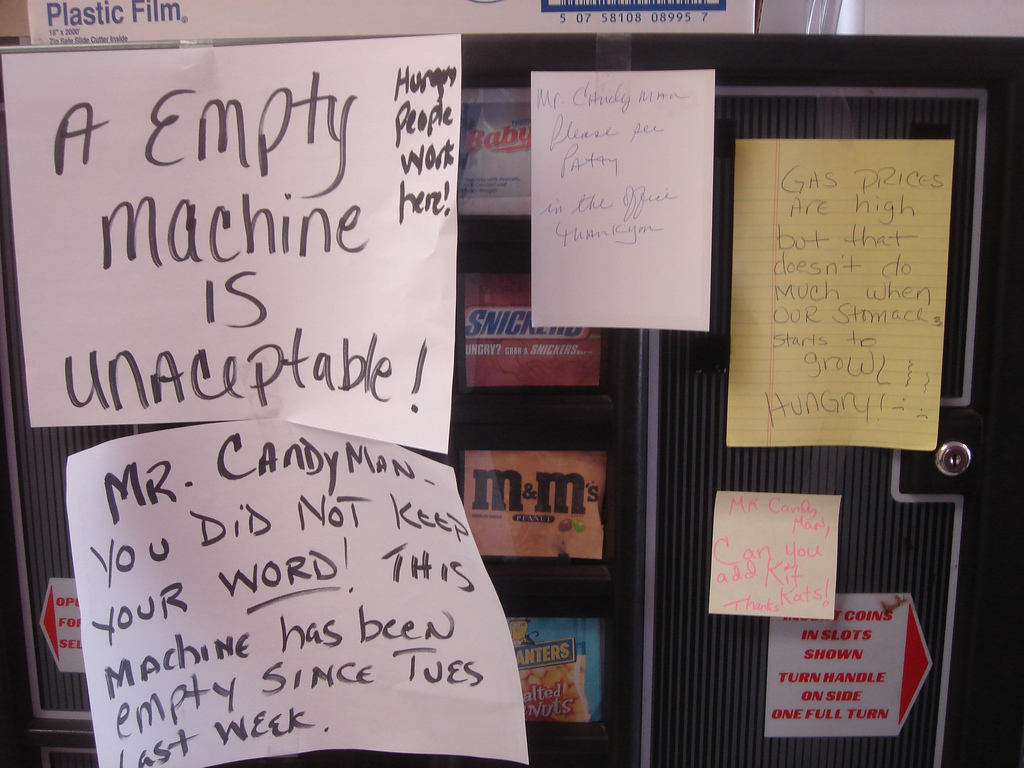 Plastic Film®
18" x 2000'
Zip Safe Slide Cutter Inside
5 07 58108 08995 7
A Empty
Machine
IS
UNAceptable!
Hungry
People
work
here!
MR. CANDYMAN.
YOU DID NOT KEEP
YOUR WORD! THIS
MACHINE has been
empty SINCE TUES
Last WEEK.
Baby
SNICKERS
UNGRY? GRAB A SNICKERS
m&m's
PEANUT
ANTERS
alted
nuts
Mr. Candy Man
Please see
Patty
in the Office
Thankyou
GAS PRICES
Are high
but that
doesn't do
Much when
OUR Stomacs
starts to
growl
HUNGRY!
Mr Candy
Man,
Can you
add Kit
Kats!
Thanks
OP
FO
SEL
T COINS
IN SLOTS
SHOWN
TURN HANDLE
ON SIDE
ONE FULL TURN